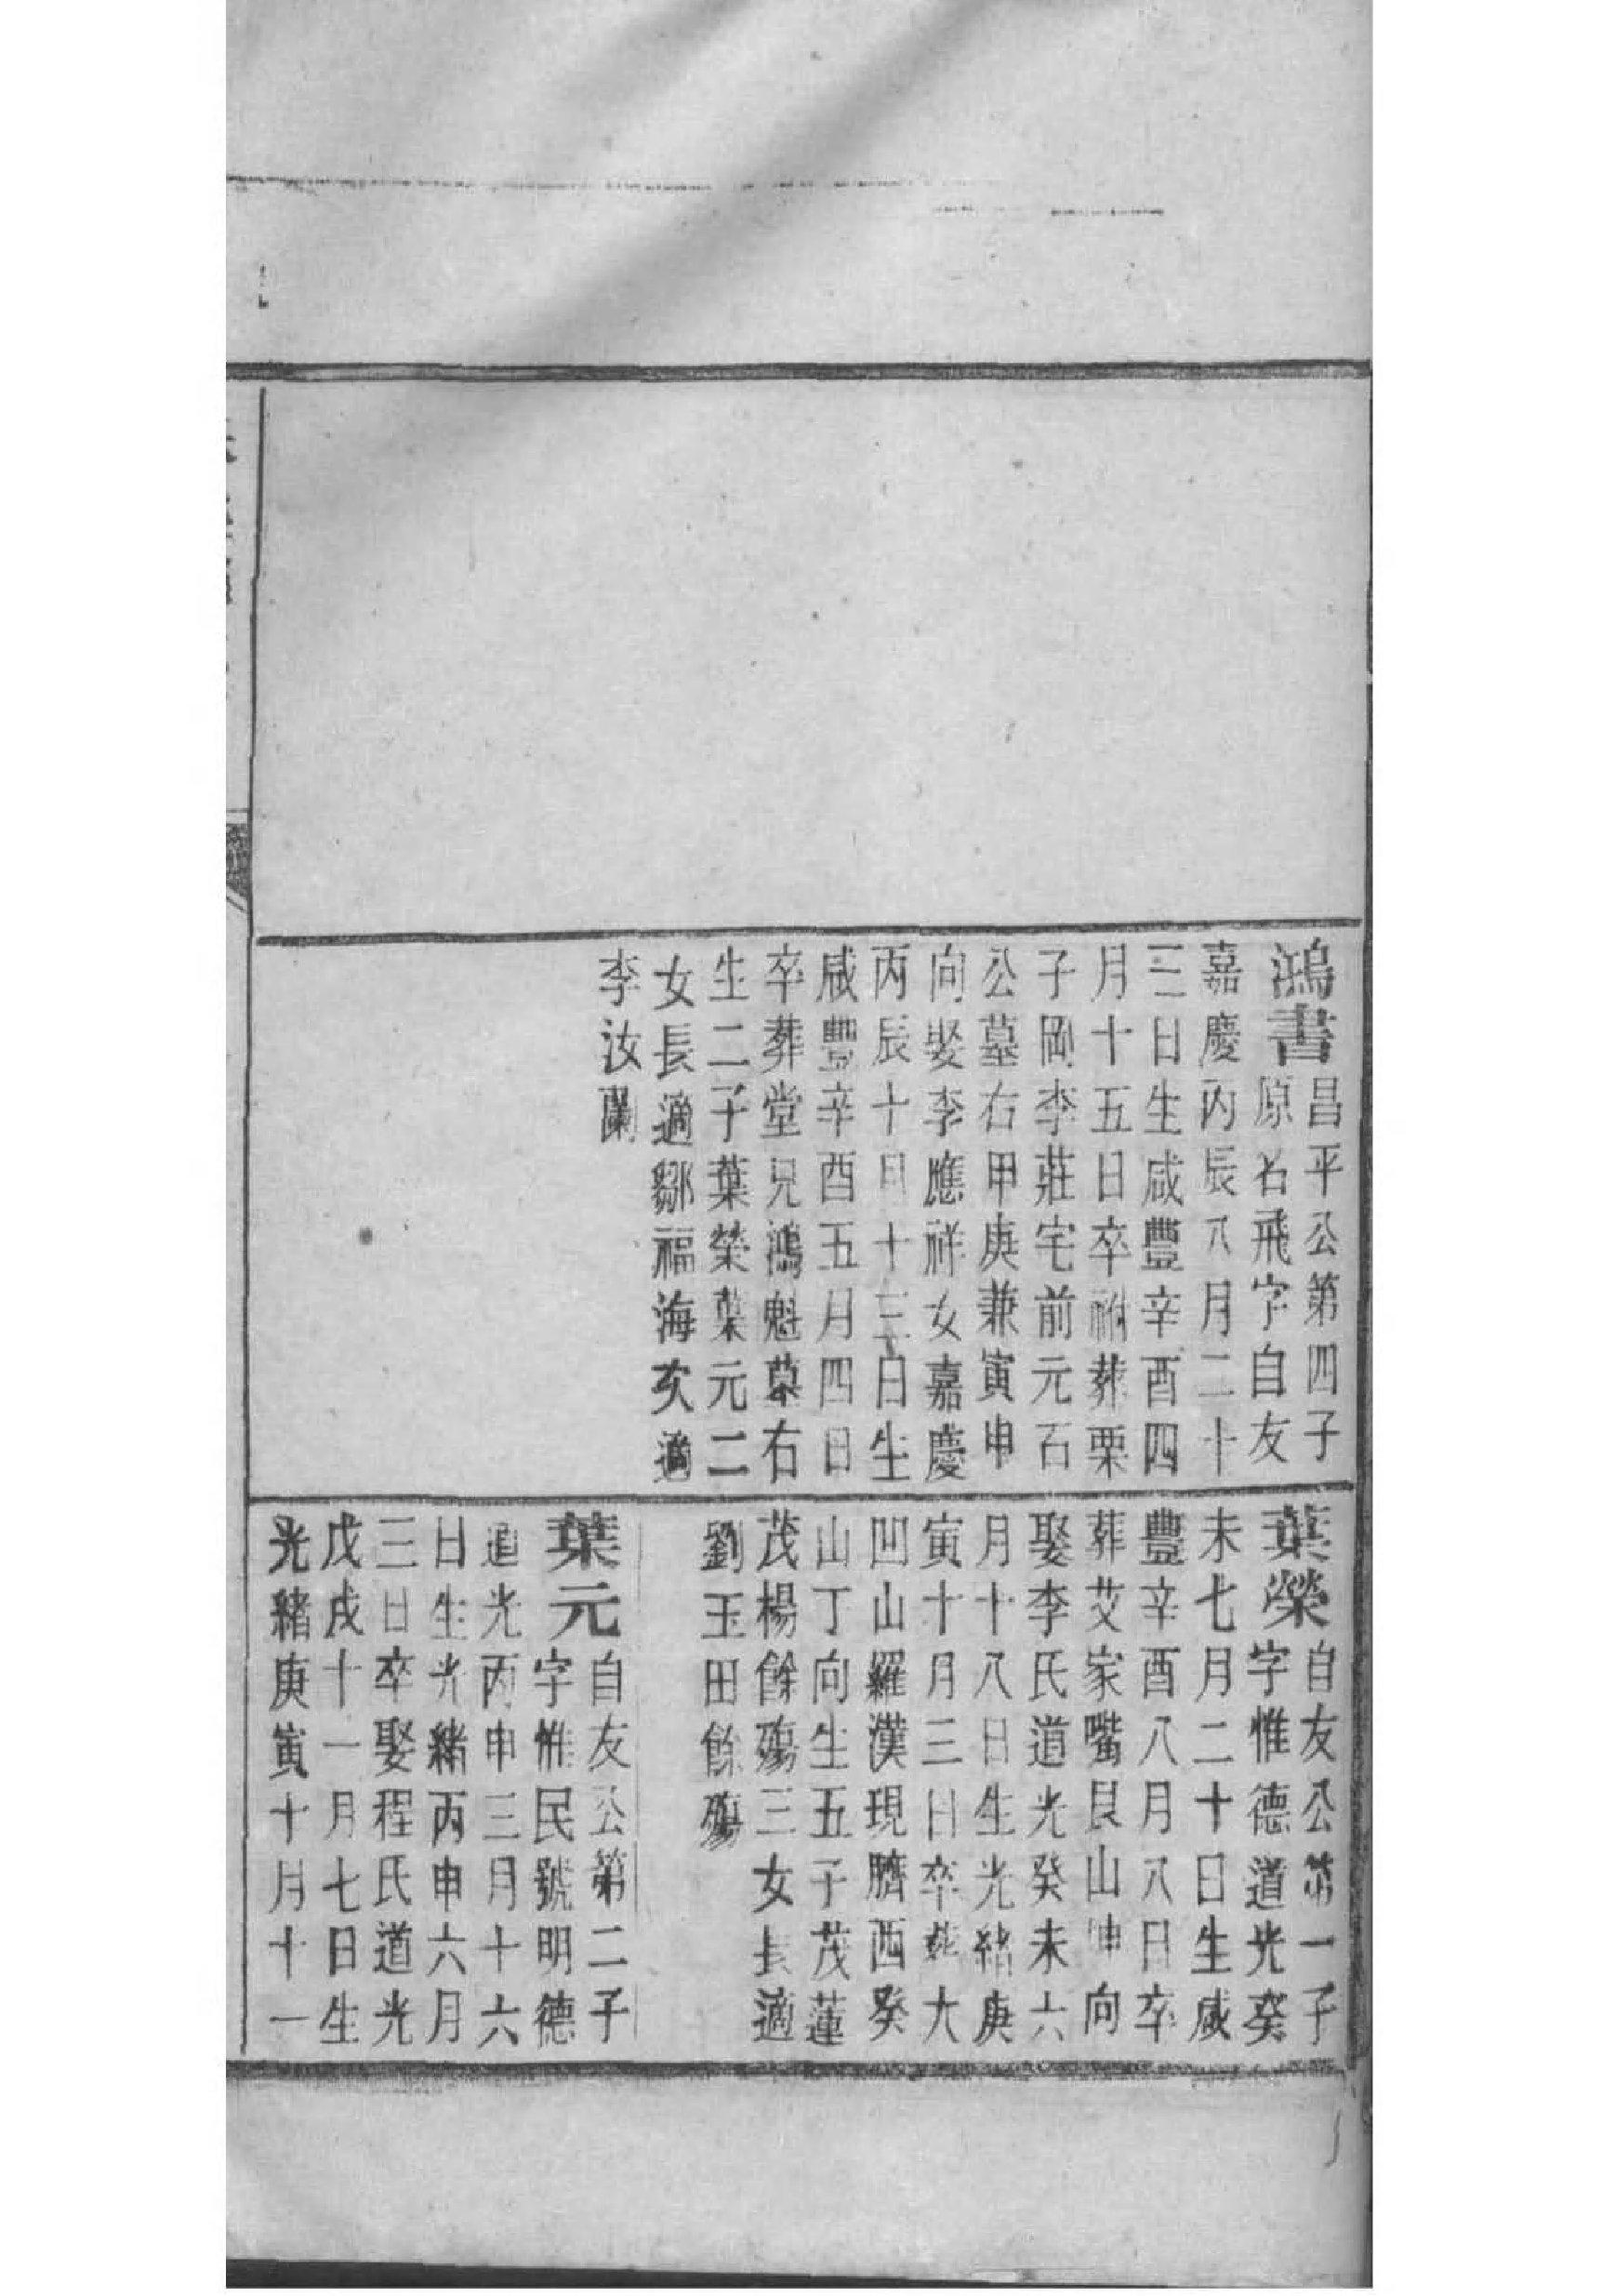 鴻書昌平公第四子
原名飛字自友
嘉慶丙辰八月二十
三日生咸豐辛酉四
月十五日卒祔葬栗
子岡李莊宅前元石
公墓右甲庚兼寅申
向娶李應祥女嘉慶
丙辰十月十三日生
咸豐辛酉五月四日
卒葬堂兄鴻魁墓右
生二子葉榮葉元二
女長適鄒福海次適
李汝蘭
葉榮自友公第一子
字惟德道光癸
未七月二十日生咸
豐辛酉八月八日卒
葬艾家嘴艮山坤向
娶李氏道光癸未六
月十八日生光緒庚
寅十月三日卒葬大
凹山羅漢現臍西癸
山丁向生五子茂蓮
茂楊餘殤三女長適
劉玉田餘殤
葉元自友公第二子
字惟民號明德
道光丙申三月十六
日生光緒丙申六月
三日卒娶程氏道光
戊戌十一月七日生
光緒庚寅十月十一